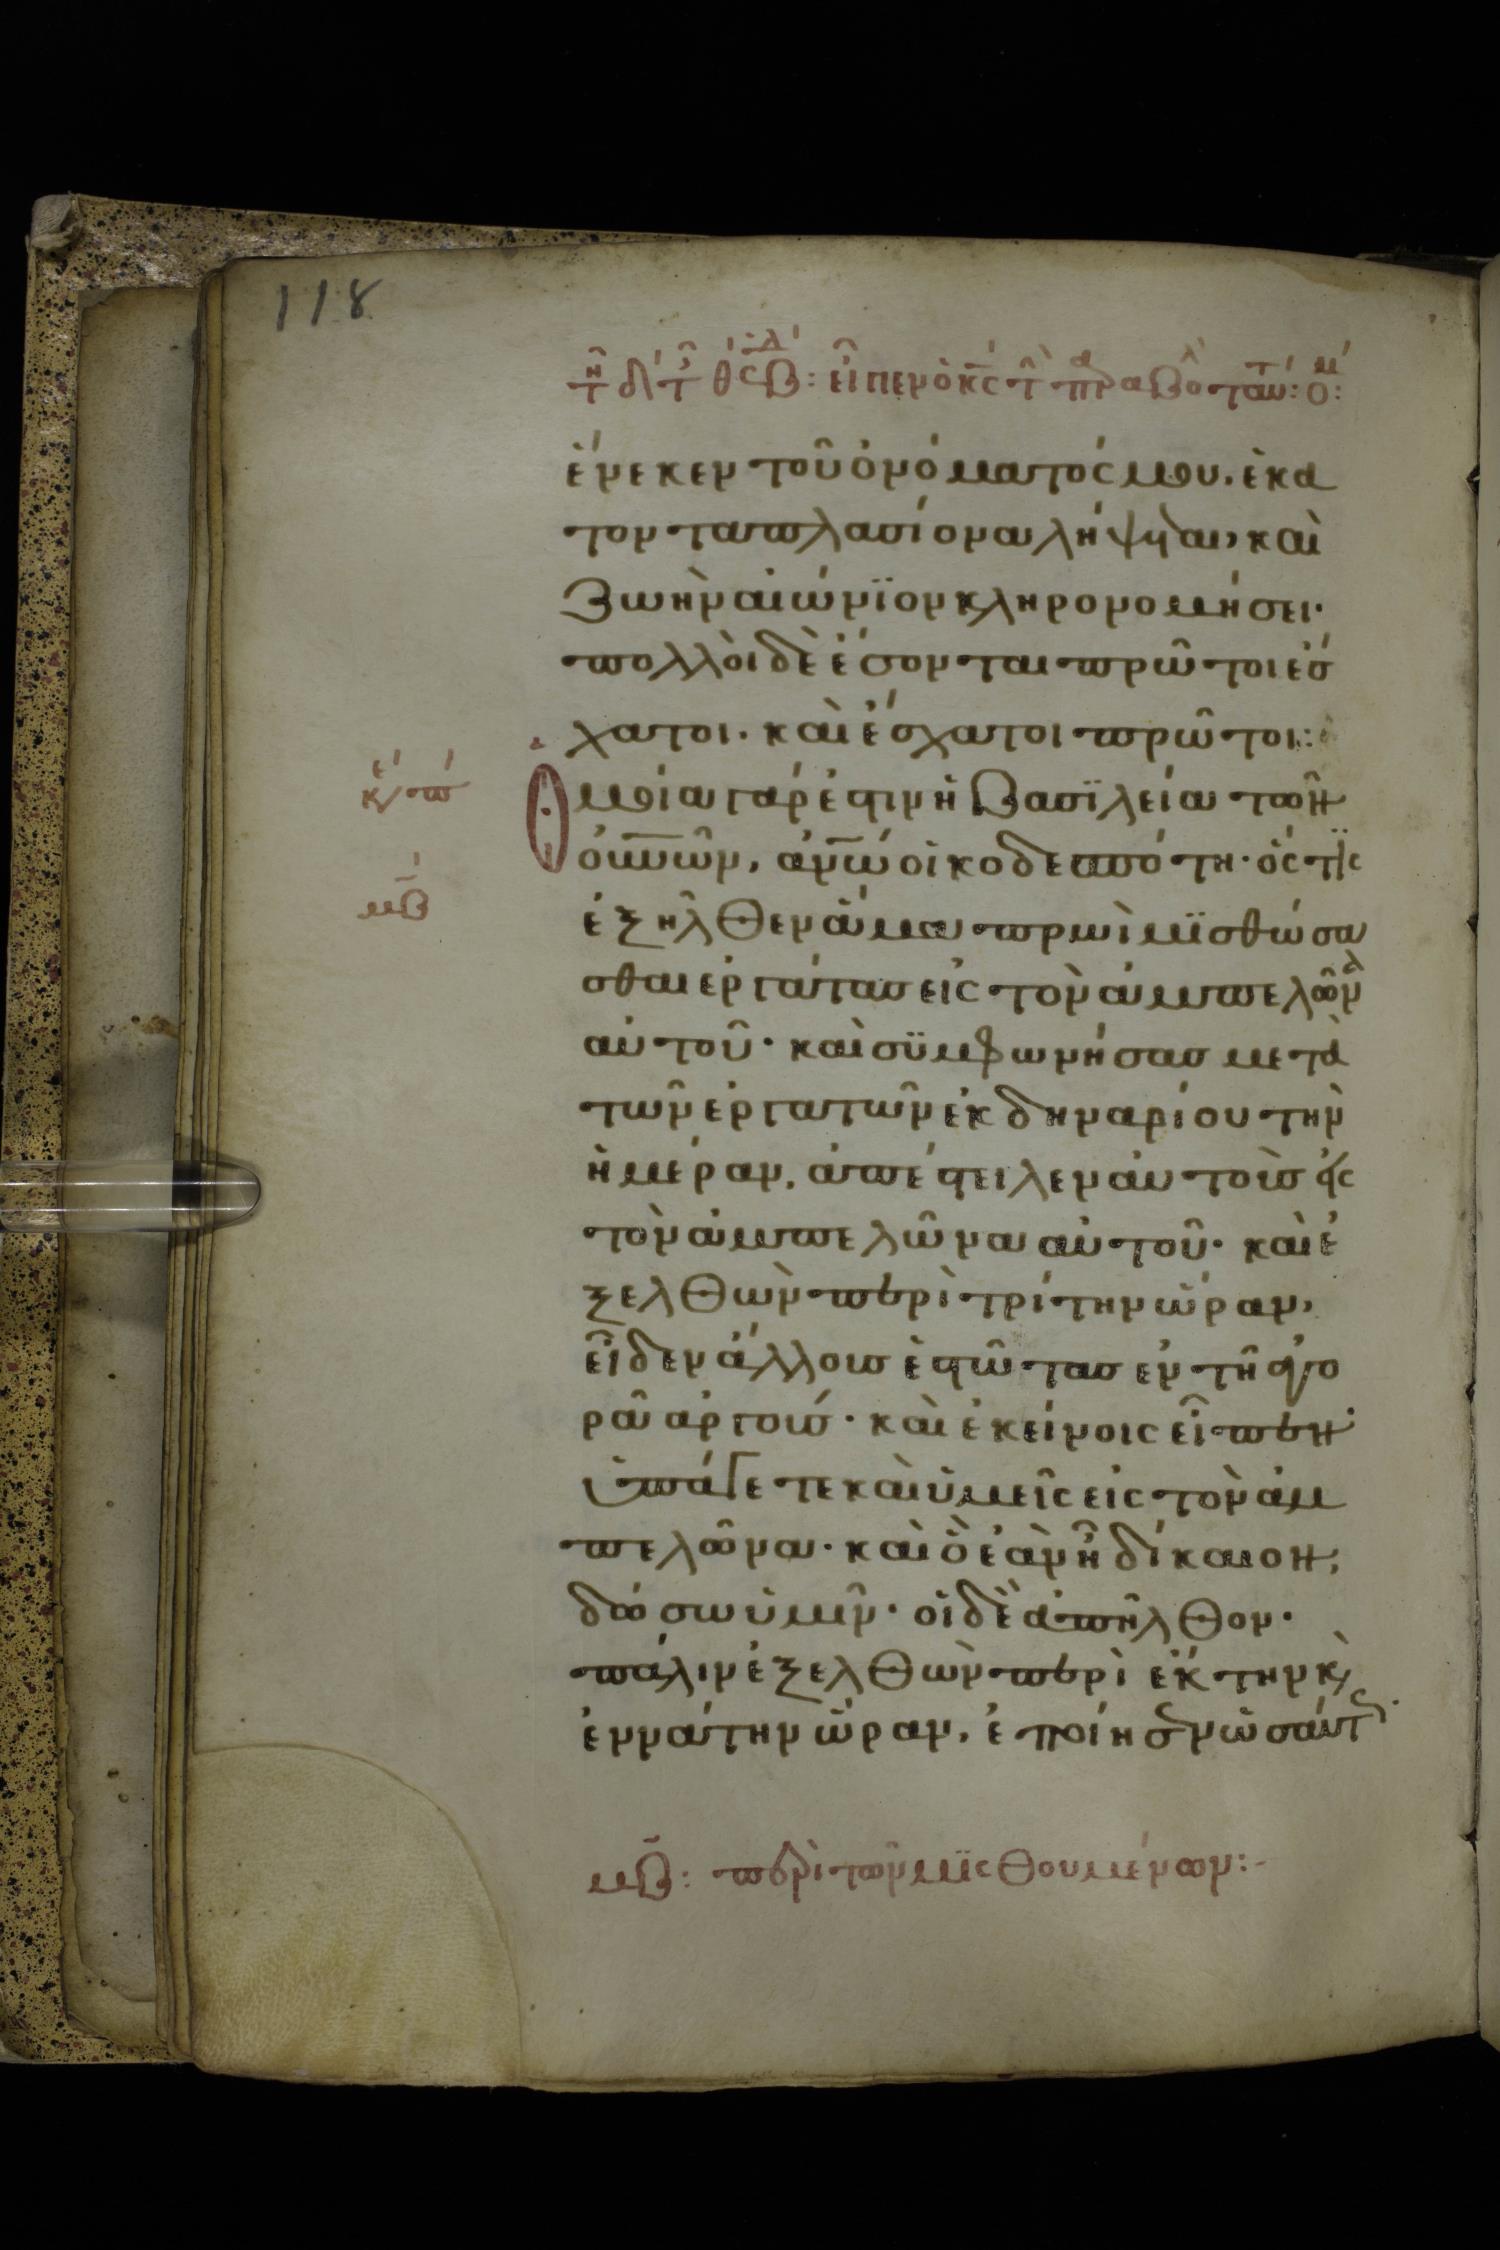 118
τῇ δ τ θ ςβ: εἶπεν ὁ κς τ πρ αβολ ταυτ: ομ:
ἕνεκεν τοῦ ὀνόματός μου. ἑκα
τονταπλασίονα λήψεται, καὶ
ζωὴν αἰώνϊον κληρονομήσει.
πολλοὶ δὲ ἔσονται πρῶτοι ἔσ
χατοι. καὶ ἔσχατοι πρῶτοι:
κε πε
Ὁμοία γάρ ἐστιν ἡ βασϊλεία τῶν
οὐνῶν, ἀνω οἰκοδεσπότη· ὅς τϊς
μβ
ἐξῆλθεν ἅμα πρωῒ μϊσθώσα
σθαι ἐργάτασ εἰς τὸν ἀμπελῶνα
αὐτοῦ· καὶ σϋμφωνήσασ μετὰ
τῶν ἐργατῶν ἐκ δηναρίου τὴν
ἡμέραν, ἀπέστειλεν αὐτοὺσ εἰς
τὸν ἀμπελῶνα αὐτοῦ· καὶ ἐ
ξελθὼν περὶ τρίτην ὥραν,
εἶδεν ἄλλουσ ἑστῶτασ ἐν τῇ ἀγο
ρᾶ ἀργούσ· καὶ ἐκείνοις εἶπεν·
ὑπάγετε καὶ ὑμεῖς εἰς τὸν ἀμ
πελῶνα· καὶ ὃ ἐὰν ᾖ δίκαιον,
δώσω ὑμῖν· οἱ δὲ ἀπῆλθον·
πάλιν ἐξελθὼν περὶ ἕκτην κ
ἐννάτην ὥραν, ἐποίησεν ὡσαύτ
μβ: περὶ τῶν μϊσθουμένων:-